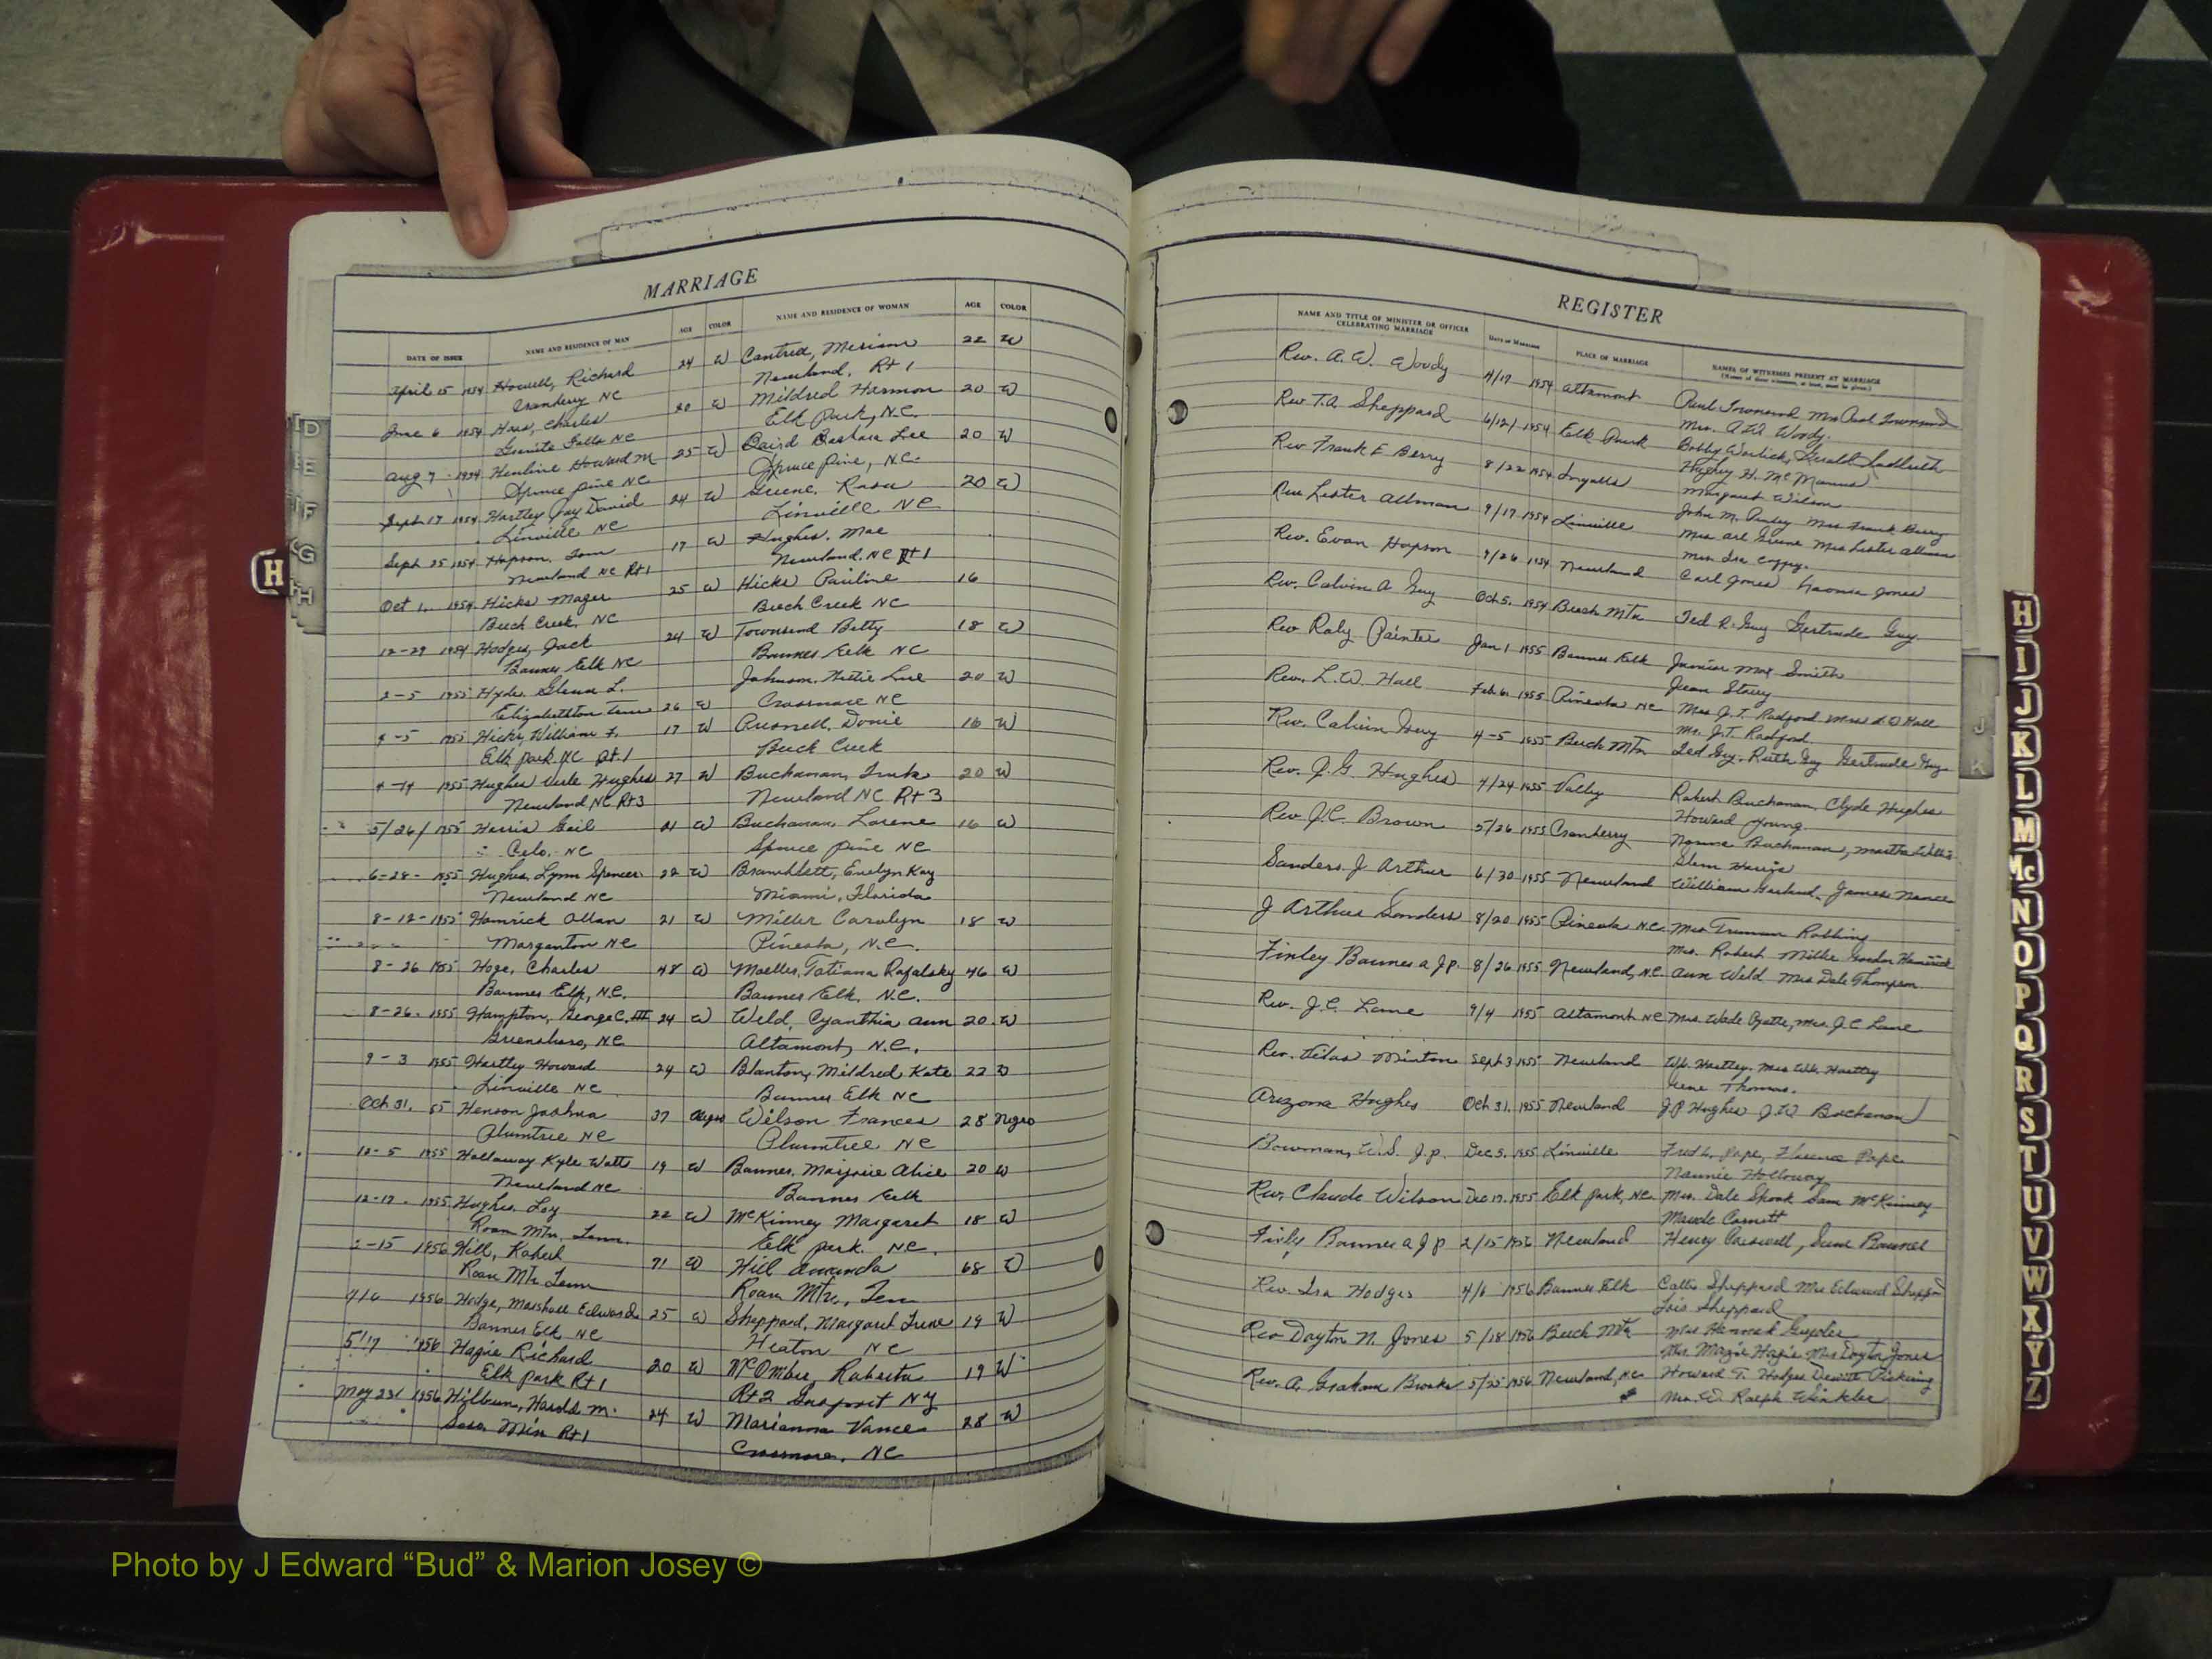 MARRIAGE
DATE OF ISSUE NAME AND RESIDENCE OF MAN AGE COLOR NAME AND RESIDENCE OF WOMAN AGE COLOR
April 15 1954 Howell, Richard 24 W Cantrell, Miriam 22 W
Cranberry NC Newland, Rt 1
June 6 1954 Haas, Charles 20 W Mildred Harmon 20 W
Granite Falls NC Elk Park, N.C.
Aug 7 1954 Howard M 25 W Baird Barbara Lee 20 W
Spruce pine NC Spruce Pine, N.C.
Sept 17 1954 Hartley Jay David 24 W Greene, Rosa 20 W
Linville NC Linville NC
Sept 25 1954 Hopson, Tom 17 W Hughes, Mae
Newland NC Rt 1 Newland. NC Rt 1
Oct 1, 1954 Hicks Mager 25 W Hicks Pauline 16
Beech Creek, NC Beech Creek NC
12-29 1954 Hodges, Jack 24 W Townsend Betty 18 W
Banner Elk NC Banner Elk NC
2-5 1955 Hyder, Glenn L. 26 W Johnson, Lue 20 W
Elizabethton Tenn Crossnore NC
4-5 1955 Hicks, William F. 17 W Donie 16 W
Elk park NC Rt. 1 Beech Creek
4-14 1955 Hughes Verle Hughes 27 W Buchanan, 20 W
Newland NC Rt 3 Newland NC Rt 3
5/26/ 1955 Harris Gail 21 W Buchanan, Lorene 16 W
Celo, NC Spruce pine NC
6-28- 1955 Hughes, Lynn Spencer 22 W Bramblett, Evelyn Kay
Newland NC Miami, Florida
8-12- 1955 Hamrick Allan 21 W Miller Carolyn 18 W
Morganton NC Pineola, N.C.
8-26 1955 Hoge, Charles 48 W Moeller, Tatiana Rafalsky 46 W
Banner Elk, N.C. Banner Elk. N.C.
8-26. 1955 Hampton, George C. III 24 W Weld, Cyanthia Ann 20 W
Greensboro, NC Altamont, N.C.
9-3 1955 Hartley Howard 24 W Blanton, Mildred Kate 22 W
Linville NC Banner Elk NC
Oct 31, 55 Henson Joshua 37 Negro Wilson Frances 28 Negro
Plumtree NC Plumtree NC
12-5 1955 Hollaway Kyle Watts 19 W Banner, Marjorie Alice 20 W
Newland NC Banner Elk
12-17- 1955 Hughes, Loy 22 W McKinney Margaret 18 W
Roan Mtn, Tenn. Elk park. NC.
2-15 1956 Hill, Robert 71 W Hill Amanda 68 W
Roan Mtn Tenn Roan Mtn., Ten
4/6 1956 Hodge, Marshall Edward 25 W Sheppard, Margaret Irene 19 W
Banner Elk NC Heaton NC
5/17 1956 Hagie Richard 20 W McOmber, Roberta 19 W
Elk Park Rt 1 Rt 2 Gasport NY
May 23 1956 Harold M. 24 W Marianna Vance 28 W
Rt 1 Crossnore, NC
REGISTER
NAME AND TITLE OF MINISTER OR OFFICER CELEBRATING MARRIAGE Date of Marriage PLACE OF MARRIAGE NAMES OF WITNESSES PRESENT AT MARRIAGE
(Names of three witnesses, at least, must be given.)
Rev. A. W. Woody 4/17 1954 Altamont Paul Townsend Mrs Paul Townsend
Mrs. A W Woody.
Rev T.A. Sheppard 6/12/ 1954 Elk Park Bobby Worlick,
Hughy H. McManus
Rev Frank E Berry 8/22 1954 Ingalls Margaret Wilson
John M. Mrs Frank Berry
Rev Lester Altman 9/17 1954 Linville Mrs Arl Greene Mrs Lester Altman
Mrs. Ira
Rev. Evan Hopson 9/26 1954 Newland Carl Jones Naomia Jones
Rev. Calvin A Guy Oct 5. 1954 Beech Mtn Ted R. Guy Gertrude Guy
Rev Raly Painter Jan 1 1955 Banner Elk Junior Max Smith
Jean Stacy
Rev. L.W. Hall Feb. 6 1955 Pineola NC Mrs J.T. Radford Mrs L W Hall
Mr. J.T. Radford.
Rev. Calvin Guy 4-5 1955 Beech Mtn Ted Guy, Ruth Guy Gertrude Guy
Rev. J.G. Hughes 4/24 1955 Valley Robert Buchanan, Clyde Hughes
Howard Young
Rev J.C. Brown 5/26 1955 Cranberry Buchanan, Martha
Glenn
Sanders J Arthur 6/30 1955 Newland William Garland, James Vance
J Arthur Sanders 8/20 1955 Pineola N.C. Mrs Truman Robbins
Mrs. Robert Miller Gordon Hamrick
Finley Banner a J.p. 8/26 1955 Newland, N.C Ann Weld Mrs Dale Thompson
Rev. J.C. Lane 9/4 1955 Altamont NC Mrs. Wade Mrs. J.C Lane
Rev. Silas Minton Sept 3 1955 Newland Hartley
Irene Thomas.
Arizona Hughes Oct 31. 1955 Newland J P Hughes J.W. Buchanan
Bowman, W.S. J.p. Dec 5. 1955 Linville Fred L. Pape, Florence Pape
Nannie Holloway
Rev. Claude Wilson Dec 17. 1955 Elk Park, NC Mrs. Dale Sam McKinney
Maude Cornett
Finly Banner a J P 2/15 1956 Newland Henry Carswell, June Banner
Rev. Ira Hodges 4/6 1956 Banner Elk Sheppard Mrs Edward
Lois Sheppard
Rev Dayton N. Jones 5/18 1956 Beech Mtn Mrs
Mrs. Hagie Mrs Dayton Jones
Rev. A. Graham Brooks 5/25 1956 Newland, NC Howard T. Hodges Dewitt Pickering
Mrs. W. Ralph Winkler
D
E
F
G
H
H
J
K
H
I
J
K
L
M
Mc
N
O
P
Q
R
S
T
U
V
W
X
Y
Z
Photo by J Edward “Bud” & Marion Josey ©